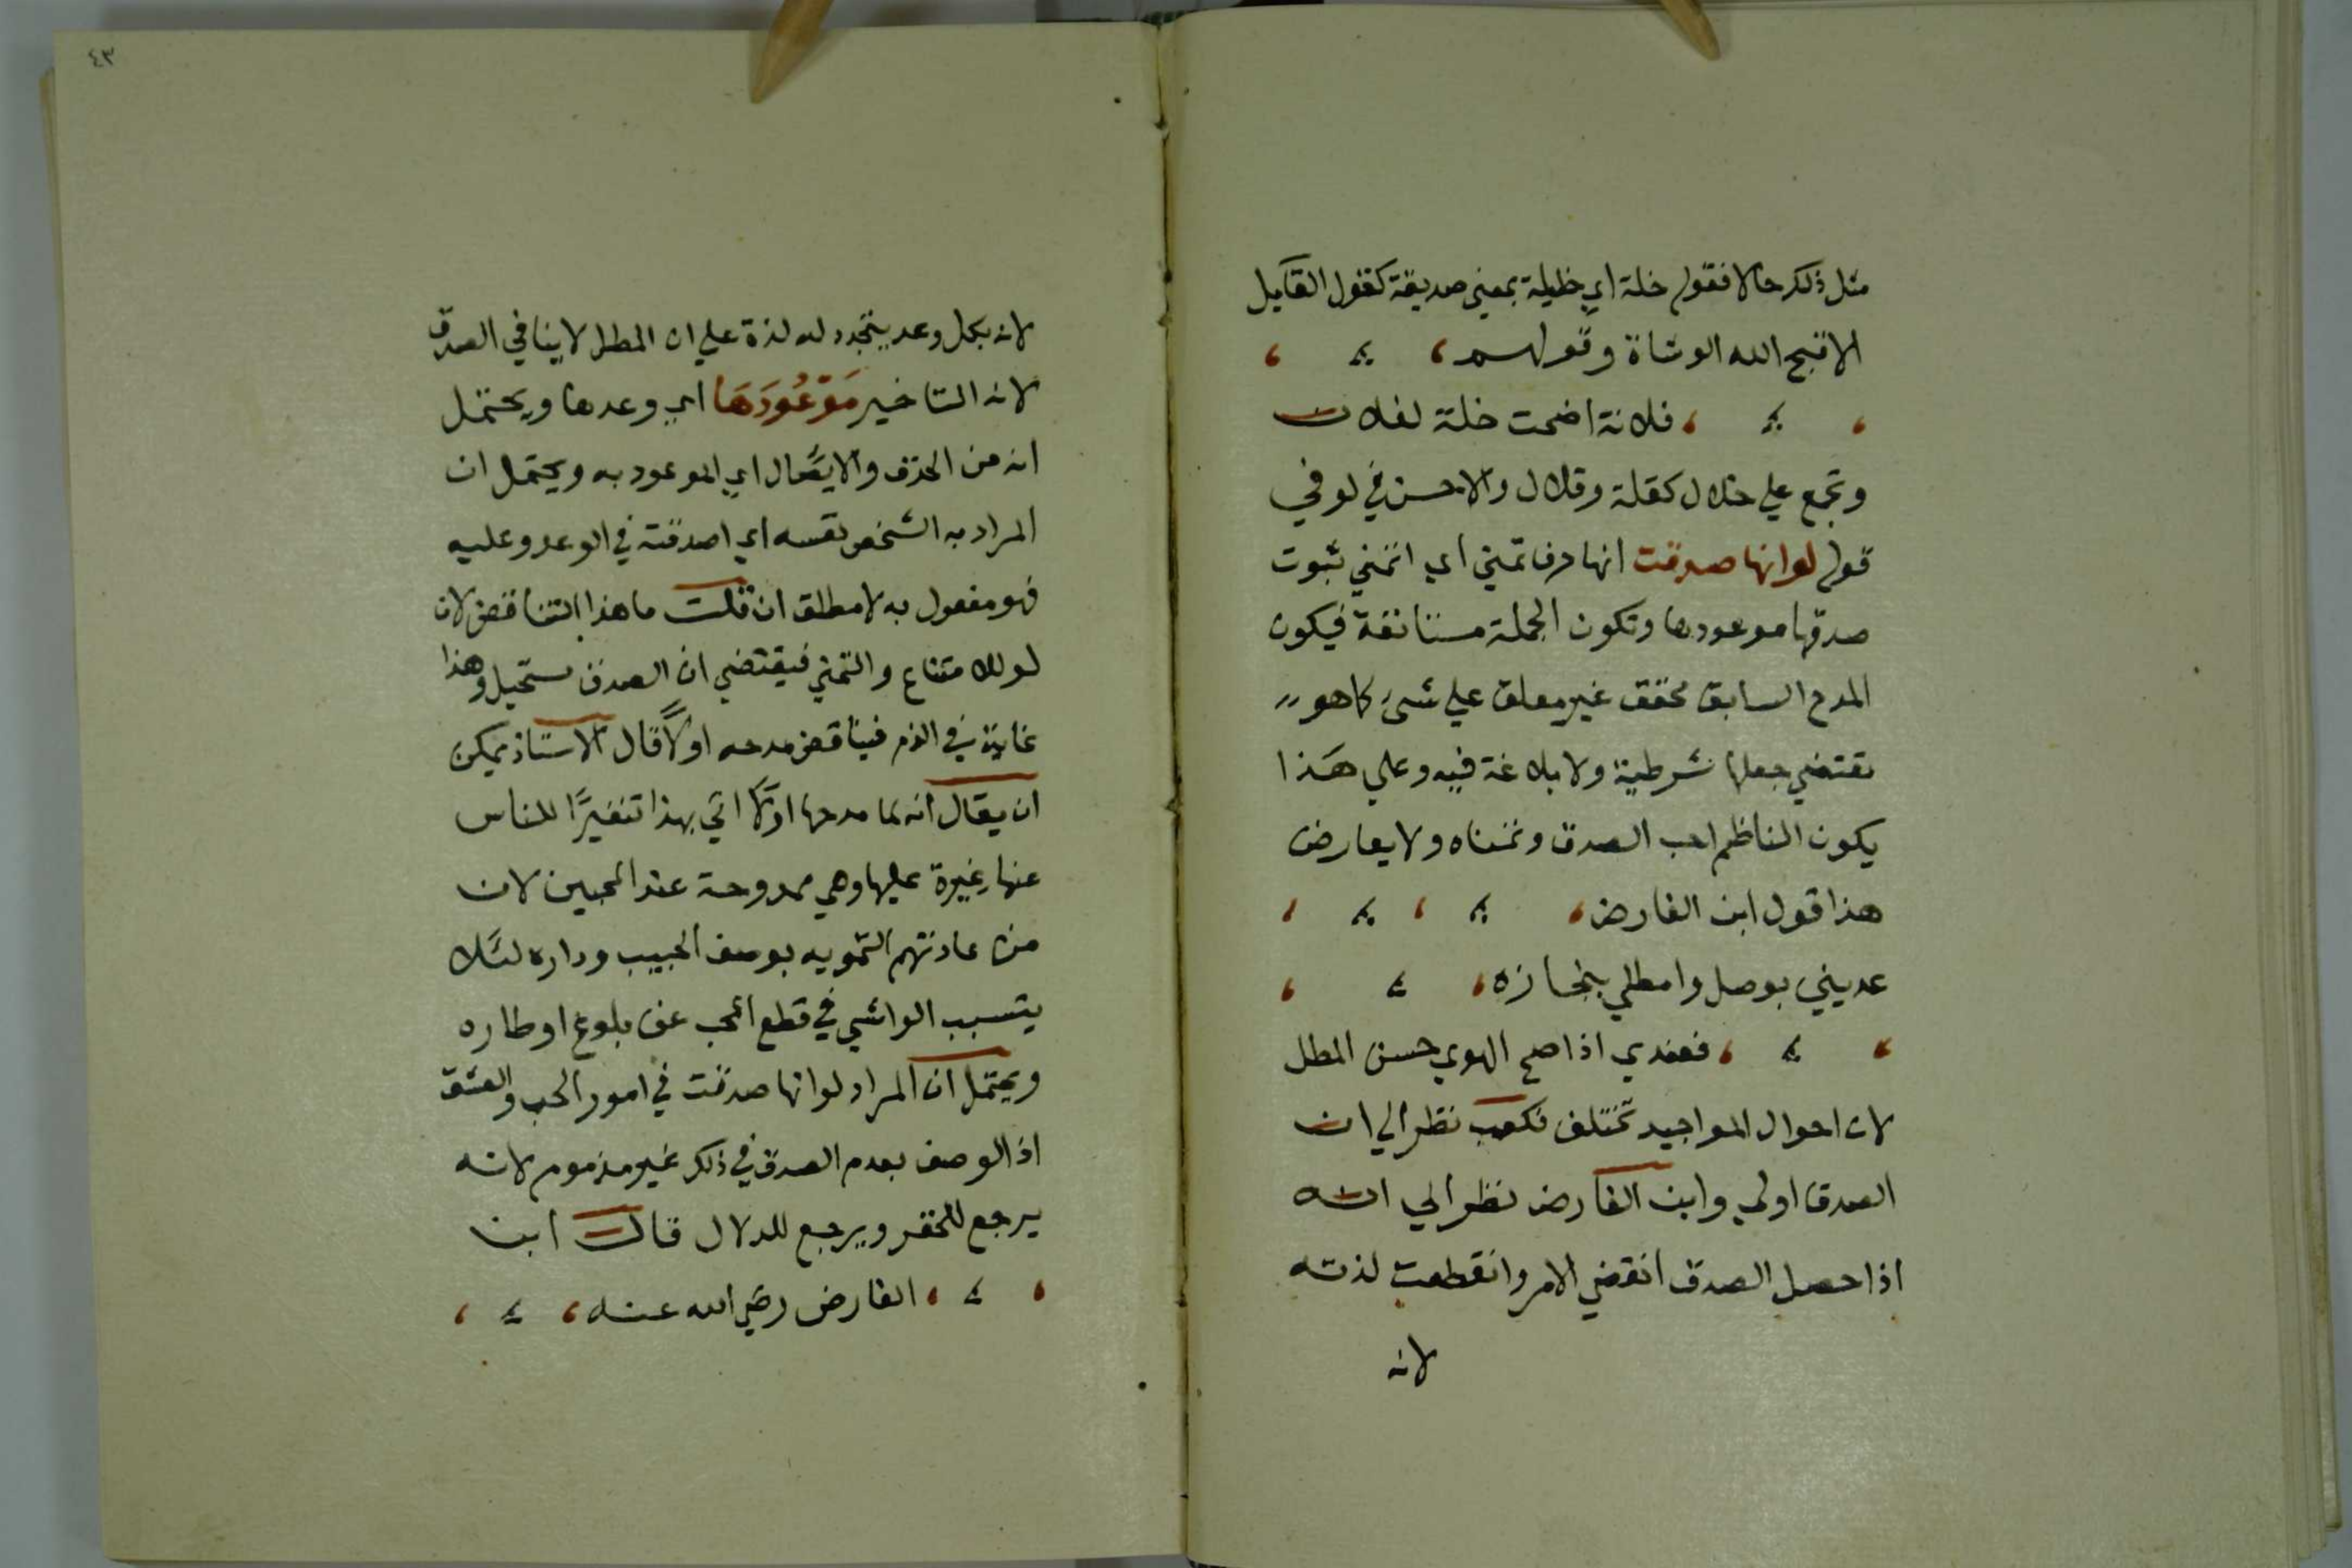 مثل ذلك حالا فقوله خلة اي خليلة بمعني صديقة كقول القايل
الا قبح الله الوشاة وقولهم ،
، فلانة اضحت خلة لفلان
وتجمع علي خلال كقلة وقلال والاحسن في لو في
قوله لو انها صدقت انها حرف تمني اي اتمني ثبوت
صدقها موعودها وتكون الجملة مستانفة فيكون
المدح السابق محقق غير معلق علي شيء كما هو
يقتضي جعلها شرطية ولا بلاغة فيه وعلي هذا
يكون الناظم احب الصدق وتمناه ولا يعارض
هذا قول ابن الفارض ،
عديني بوصل وامطلي بنجازه ،
، فعندي اذا صح الهوي حسن المطل
لان احوال المواجيد تختلف فكعب نظر الي ان
الصدق اولي وابن الفارض نظر الي انه
اذا حصل الصدق انقضي الامر وانقطعت لذته
لانه
٤٣
لانه بكل وعد يتجدد له لذة علي ان المطل لا ينافي الصدق
لانه التاخير مَوْعُودَهَا اي وعدها ويحتمل
انه من الحذف والايصال اي الموعود به ويحتمل ان
المراد به الشخص نفسه اي اصدقته في الوعد وعليه
فهو مفعول به لا مطلق ان قلت ما هذا التناقض لان
لو للامتناع والتمني فيقتضي ان الصدق مستحيل وهذا
غاية في الذم فيناقض مدحه اولًا قال الاستاذ يمكن
ان يقال انه لما مدحها اولًا اتي بهذا تنفيرًا للناس
عنها غيرة عليها وهي ممدوحة عند المحبين لان
من عادتهم التمويه بوصف الحبيب وداره لئلا
يتسبب الواشي في قطع المحب عن بلوغ اوطاره
ويحتمل ان المراد لو انها صدقت في امور الحب والعشق
اذ الوصف بعدم الصدق في ذلك غير مذموم لانه
يرجع للخفر ويرجع للدلال قال ابن
، الفارض رضي الله عنه ،